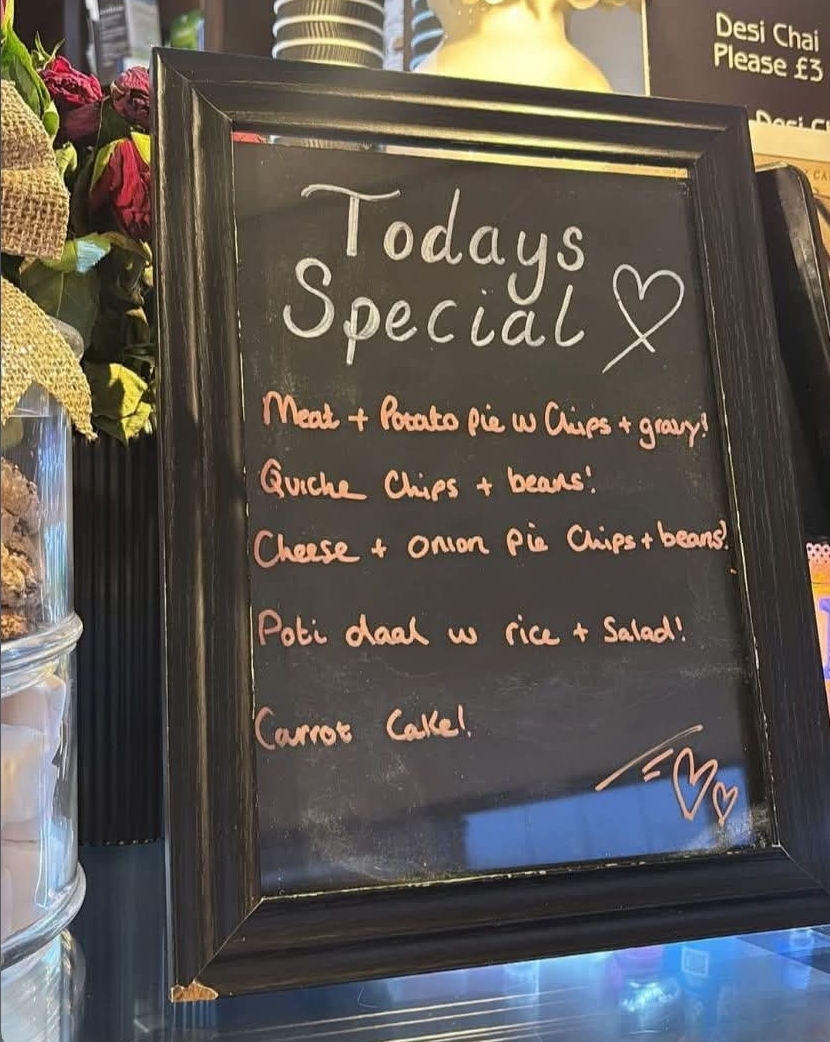 Desi Chai
Please £3
Desi Ch
Todays
Special
Meat + Potato pie w Chips + gravy!
Quiche Chips + beans!
Cheese + onion pie Chips + beans!
Poti daal w rice + Salad!
Carrot Cake!